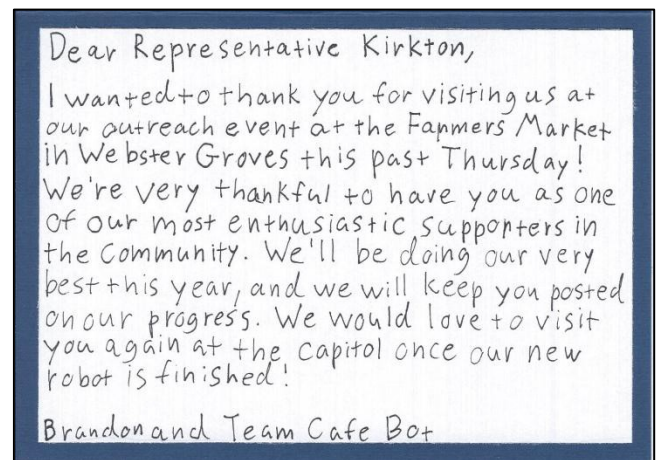 Dear Representative Kirkton,
I wanted to thank you for visiting us at
our outreach event at the Farmers Market
in Webster Groves this past Thursday!
We're very thankful to have you as one
of our most enthusiastic supporters in
the Community. We'll be doing our very
best this year, and we will keep you posted
on our progress. We would love to visit
you again at the Capitol once our new
robot is finished!
Brandon and Team Cafe Bot